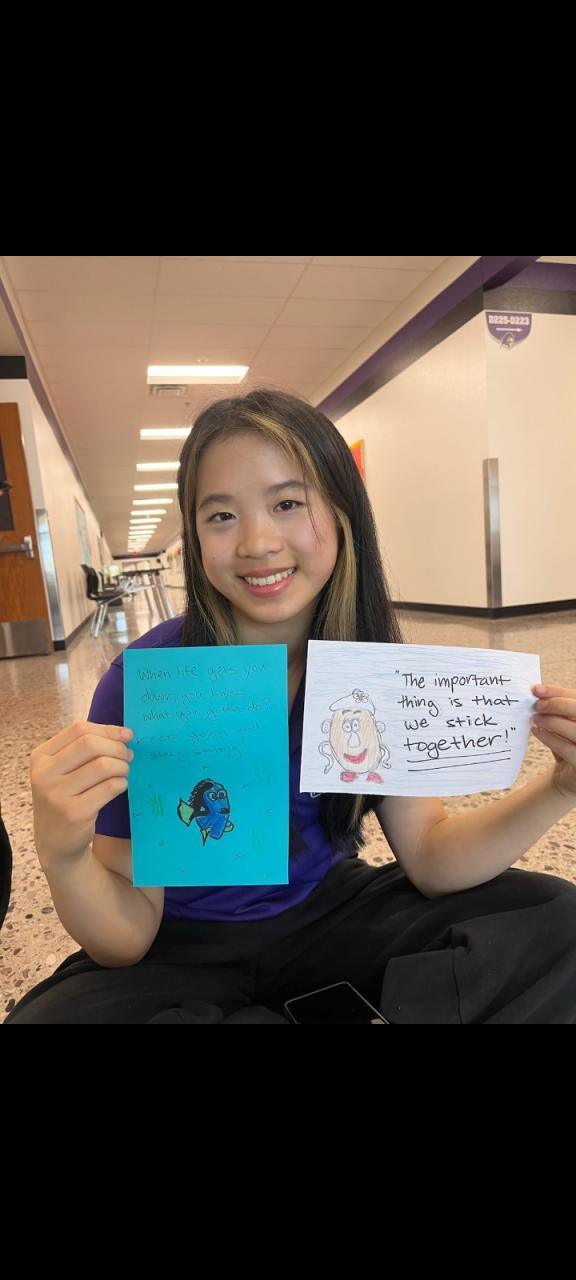 D225-D223
When life gets you
down, you know
what you gotta do?
keep going and
stay strong
"The important
thing is that
we stick
together!"